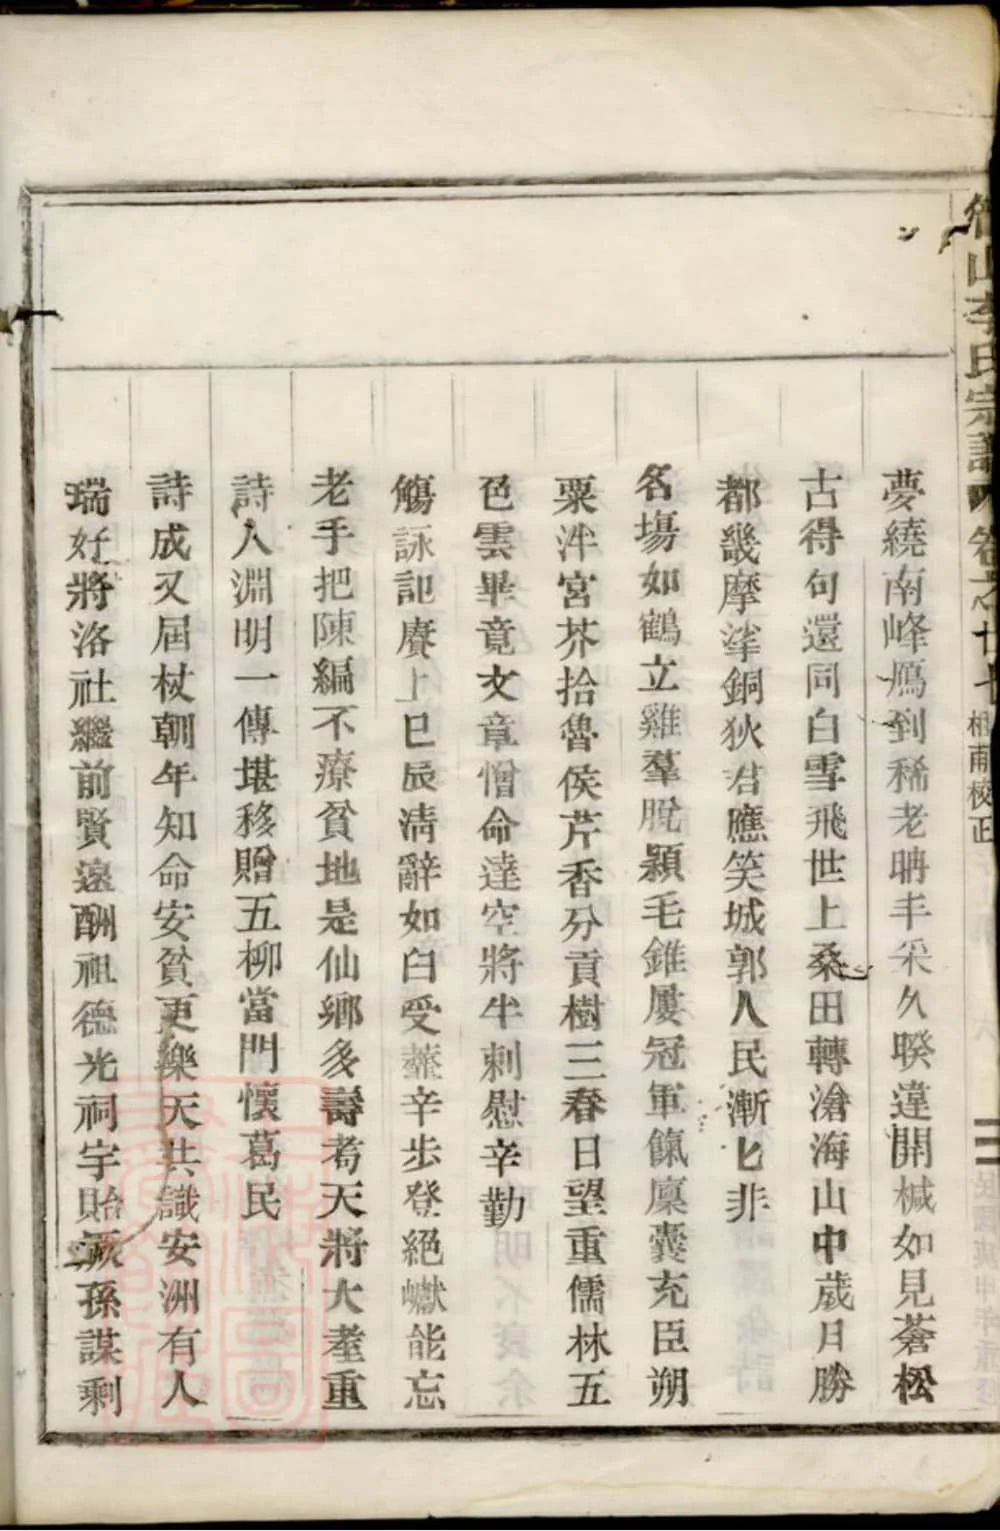 山李氏宗譜 卷之廿七 相甫校正 二
夢繞南峰鴈到稀老聃丰采久暌違開椷如見蒼松
古得句還同白雪飛世上桑田轉滄海山中歲月勝
都畿摩挲銅狄君應笑城郭人民漸匕非
名塲如鶴立雞羣脫潁毛錐屢冠軍餼廩囊充臣朔
粟泮宮芥拾魯侯芹香分貢樹三春日望重儒林五
色雲畢竟文章憎命達空將半刺慰辛勤
觴詠記賡上巳辰淸辭如臼受虀辛步登絕巘能忘
老手把陳編不療貧地是仙鄉多壽耇天將大耋重
詩人淵明一傳堪移贈五柳當門懷葛民
詩成又屆杖朝年知命安貧更樂天共識安洲有人
瑞好將洛社繼前賢遠酬祖德光祠宇貽厥孫謀剩